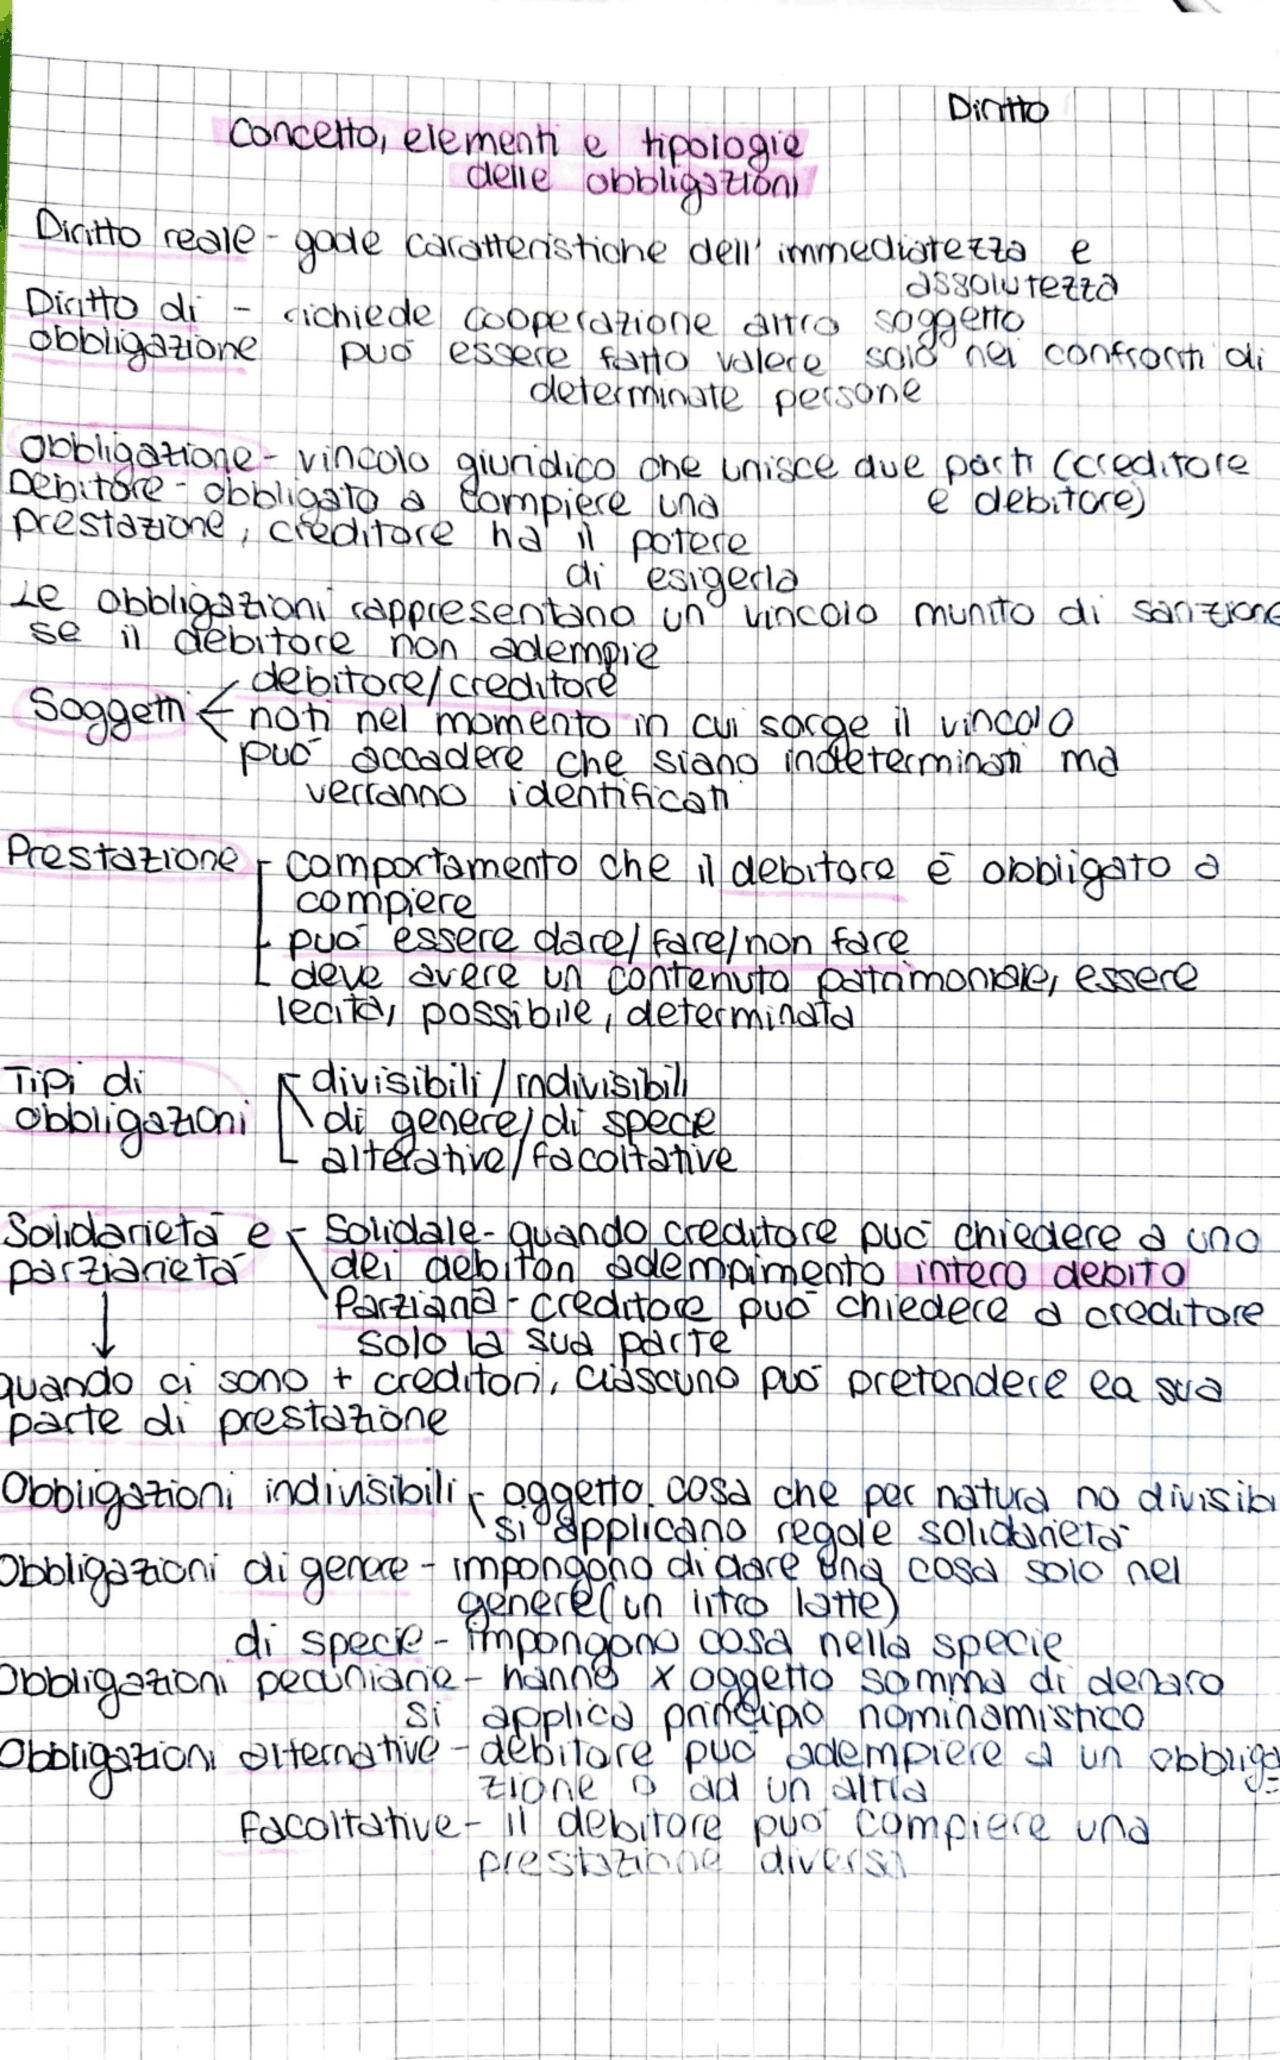 Diritto
Concetto, elementi e tipologie
delle obbligazioni
Diritto reale - gode caratteristiche dell'immediatezza e
assolutezza
Diritto di - richiede cooperazione altro soggetto
obbligazione può essere fatto valere solo nei confronti di
determinate persone
Obbligazione - vincolo giuridico che unisce due parti (creditore
e debitore)
Debitore - obbligato a compiere una
prestazione, creditore ha il potere
di esigerla
Le obbligazioni rappresentano un vincolo munito di sanzione
se il debitore non adempie
debitore/creditore
Soggetti noti nel momento in cui sorge il vincolo
può accadere che siano indeterminati ma
verranno identificati
Prestazione - comportamento che il debitore è obbligato a
compiere
può essere dare/fare/non fare
deve avere un contenuto patrimoniale, essere
lecita, possibile, determinata
Tipi di divisibili/indivisibili
obbligazioni di genere/di specie
alterative/facoltative
Solidarietà e - Solidale - quando creditore può chiedere a uno
parziarietà dei debitori adempimento intero debito
Parziaria - creditore può chiedere a creditore
solo la sua parte
↓
quando ci sono + creditori, ciascuno può pretendere la sua
parte di prestazione
Obbligazioni indivisibili - oggetto cosa che per natura no divisibi
si applicano regole solidarietà
Obbligazioni di genere - impongono di dare una cosa solo nel
genere (un litro latte)
di specie - impongono cosa nella specie
Obbligazioni pecuniarie - hanno x oggetto somma di denaro
si applica principio nominamistico
Obbligazioni alternative - debitore può adempiere a un obbliga-
zione o ad un altra
facoltative - il debitore può compiere una
prestazione diversa